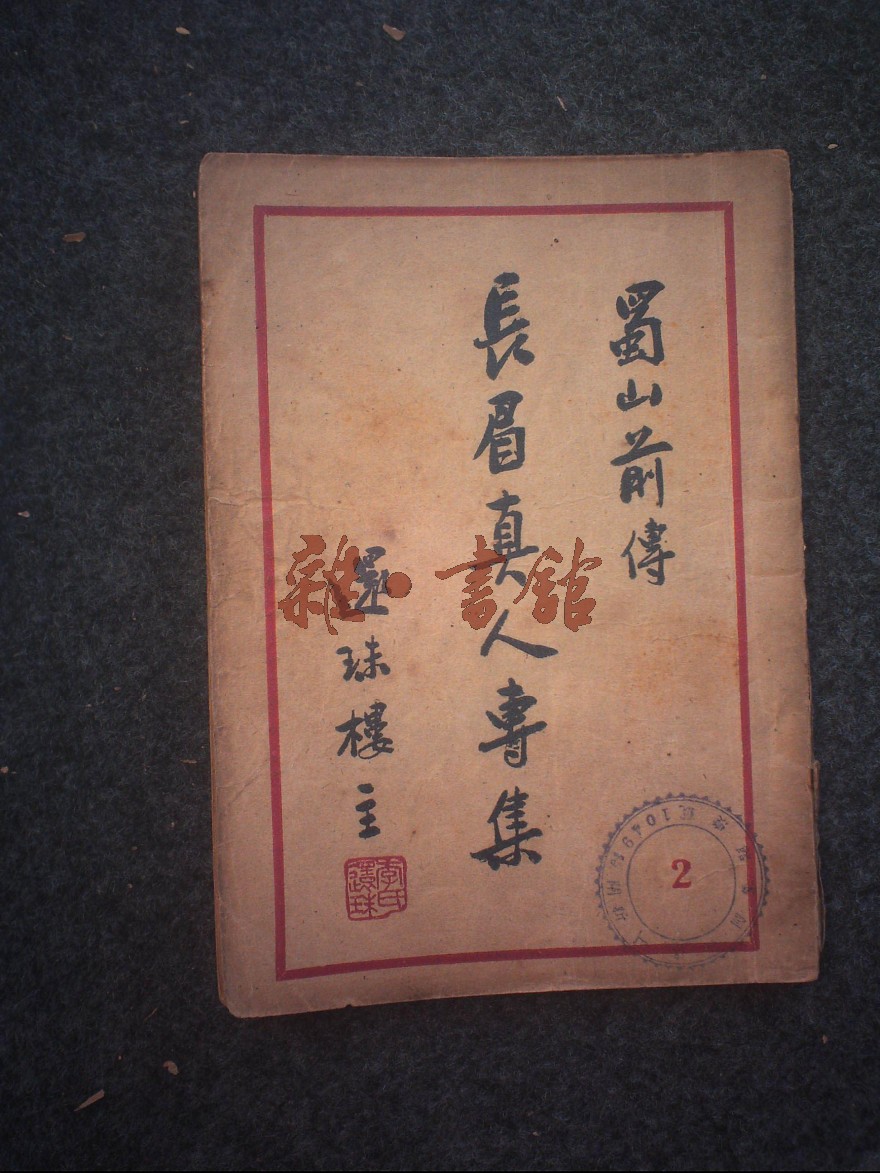 蜀山前傳
長眉真人專集
還珠樓主
李氏還珠
2
雜·書館